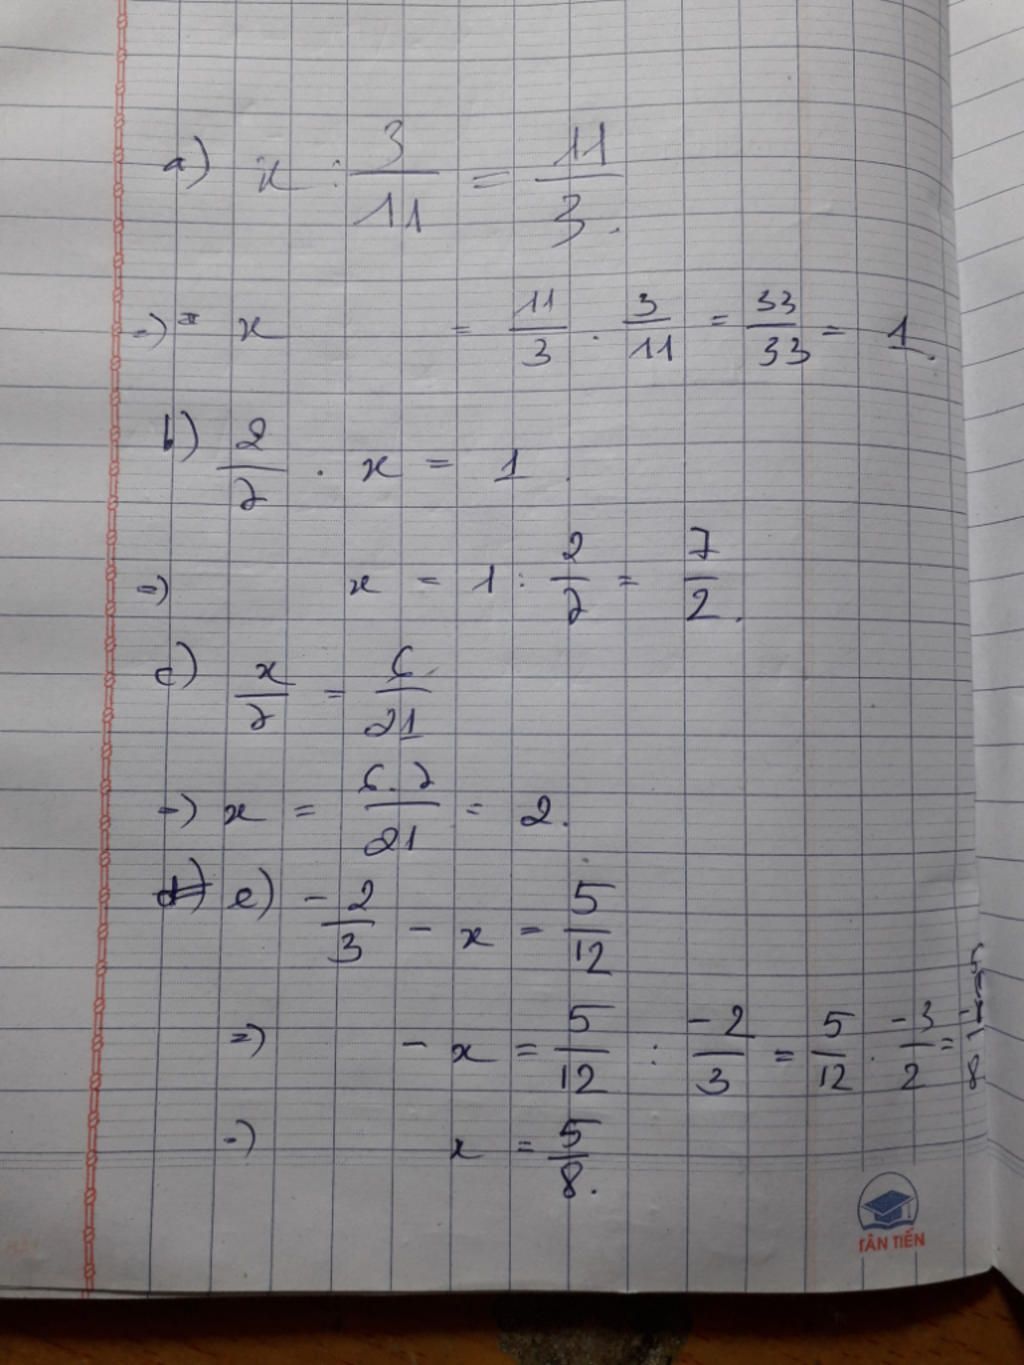 a) x : 3/11 = 11/3.
=) = x = 11/3 . 3/11 = 33/33 = 1.
b) 2/7 . x = 1
=) x = 1 : 2/7 = 7/2.
c) x/7 = 6/21
=) x = 6.7/21 = 2.
d) e) -2/3 - x = 5/12
=) - x = 5/12 : -2/3 = 5/12 . -3/2 = -5/8
=) x = 5/8.
TÂN TIẾN